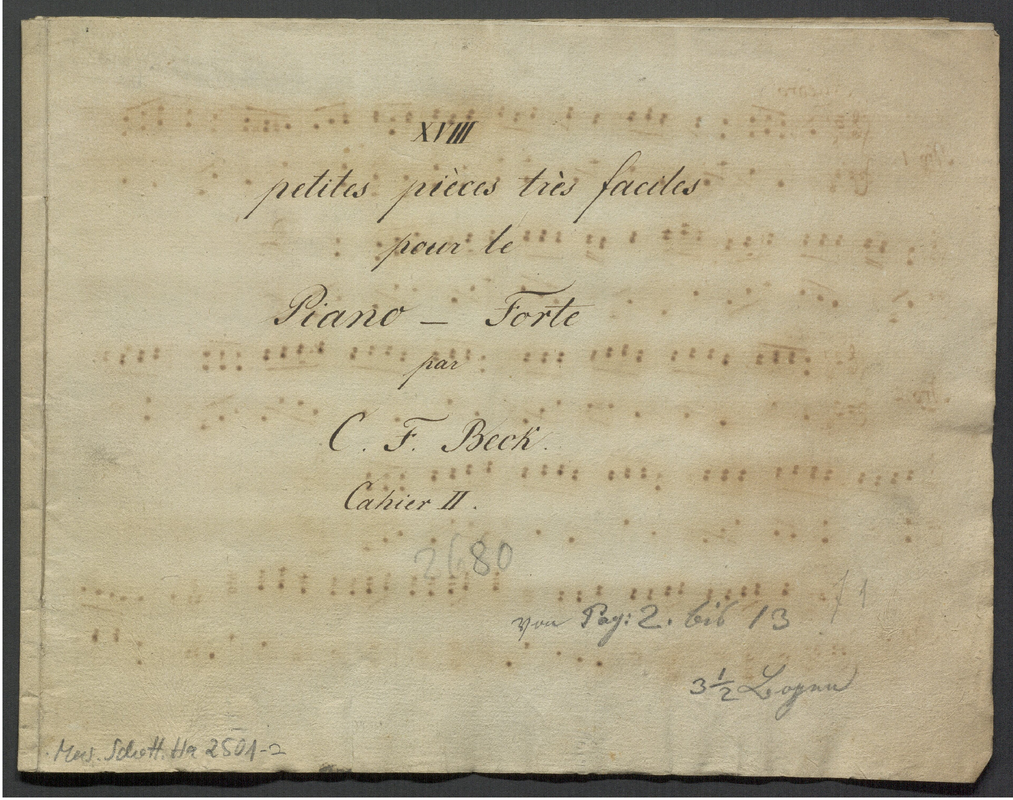 XVIII
petites pièces très faciles
pour le
Piano — Forte
par
C. F. Beck.
Cahier II.
2680
von Pag: 2. bis 13
3½ Bogen
Mus. Schott. Ha 2501-2